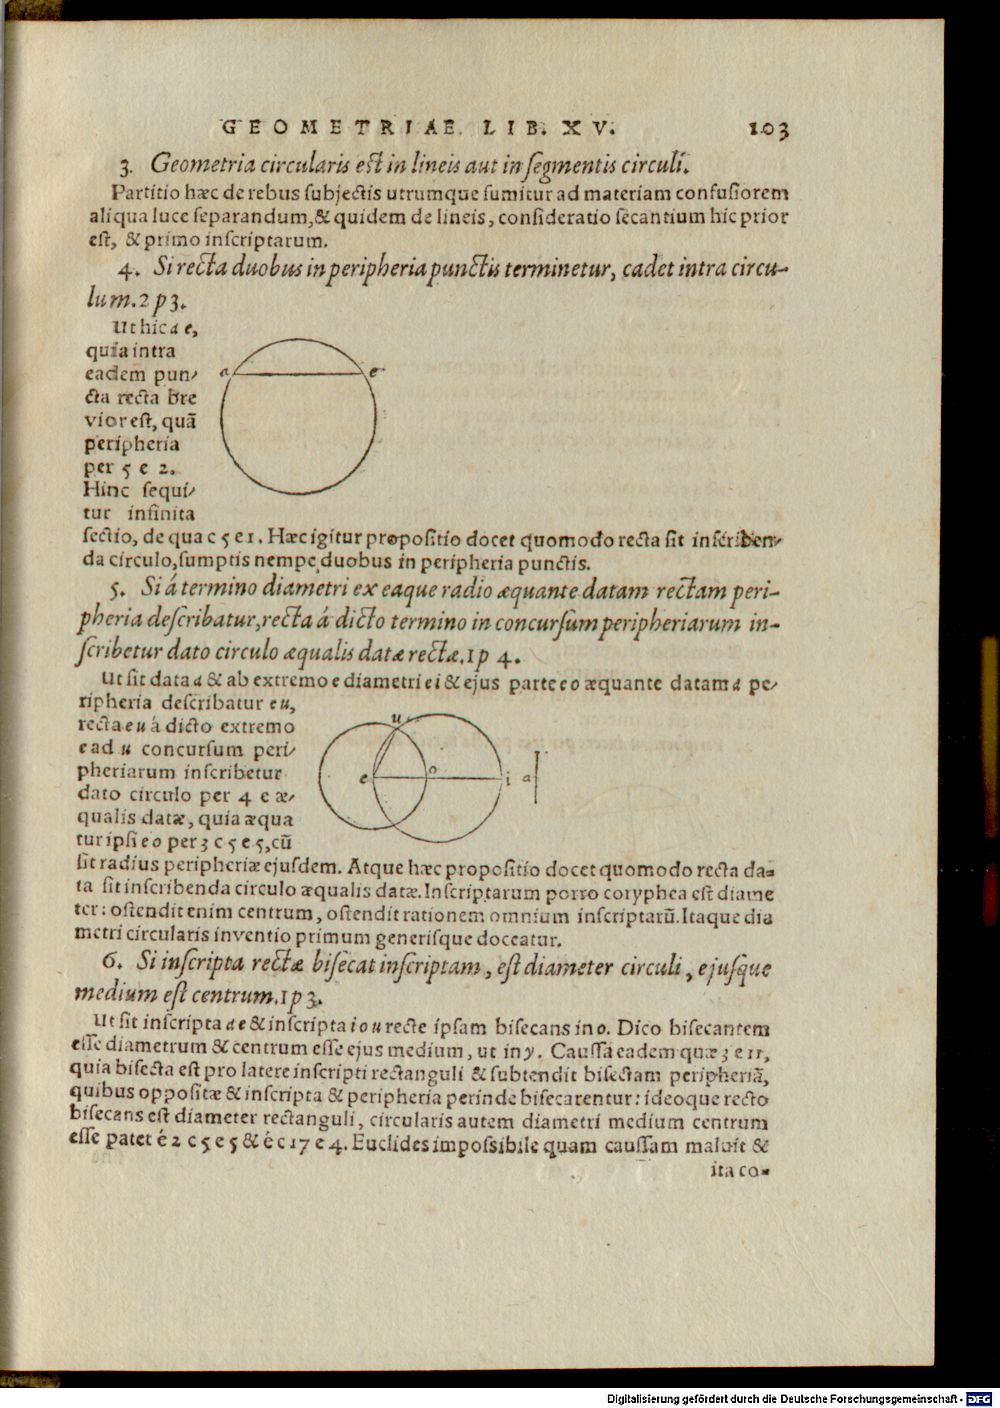 GEOMETRIAE. LIB. XV. 103
3. Geometria circularis est in lineis aut in segmentis circuli.
Partitio hæc de rebus subjectis utrumque sumitur ad materiam confusiorem
aliqua luce separandum, & quidem de lineis, consideratio secantium hic prior
est, & primo inscriptarum.
4. Si recta duobus in peripheria punctis terminetur, cadet intra circu-
lum. 2 p 3.
Ut hic a e,
quia intra
eadem pun-
cta recta bre
vior est, quã
peripheria
per 5 e 2.
Hinc sequi-
tur infinita
a e
sectio, de qua c 5 e 1. Hæc igitur propositio docet quomodo recta sit inscriben-
da circulo, sumptis nempe duobus in peripheria punctis.
5. Si á termino diametri ex eaque radio æquante datam rectam peri-
pheria describatur, recta á dicto termino in concursum peripheriarum in-
scribetur dato circulo æqualis datæ rectæ. 1 p 4.
Ut sit data a & ab extremo e diametri e i & ejus parte e o æquante datam a pe-
ripheria describatur e u,
recta e u á dicto extremo
e ad u concursum peri-
pheriarum inscribetur
dato circulo per 4 e æ-
qualis datæ, quia æqua
tur ipsi e o per 3 c 5 e 5, cũ
u
e o i a
sit radius peripheriæ ejusdem. Atque hæc propositio docet quomodo recta da-
ta sit inscribenda circulo æqualis datæ. Inscriptarum porro coryphea est diame
ter: ostendit enim centrum, ostendit rationem omnium inscriptarũ. Itaque dia
metri circularis inventio primum generisque doceatur.
6. Si inscripta rectæ bisecat inscriptam, est diameter circuli, ejusque
medium est centrum. 1 p 3.
Ut sit inscripta a e & inscripta i o u recte ipsam bisecans in o. Dico bisecantem
esse diametrum & centrum esse ejus medium, ut in y. Caussa eadem quæ 3 e 11,
quia bisecta est pro latere inscripti rectanguli & subtendit bisectam peripheriã,
quibus oppositæ & inscripta & peripheria perinde bisecarentur: ideoque recto
bisecans est diameter rectanguli, circularis autem diametri medium centrum
esse patet é 2 c 5 e 5 & é c 17 e 4. Euclides impossibile quam caussam maluit &
ita co-
Digitalisierung gefördert durch die Deutsche Forschungsgemeinschaft - DFG